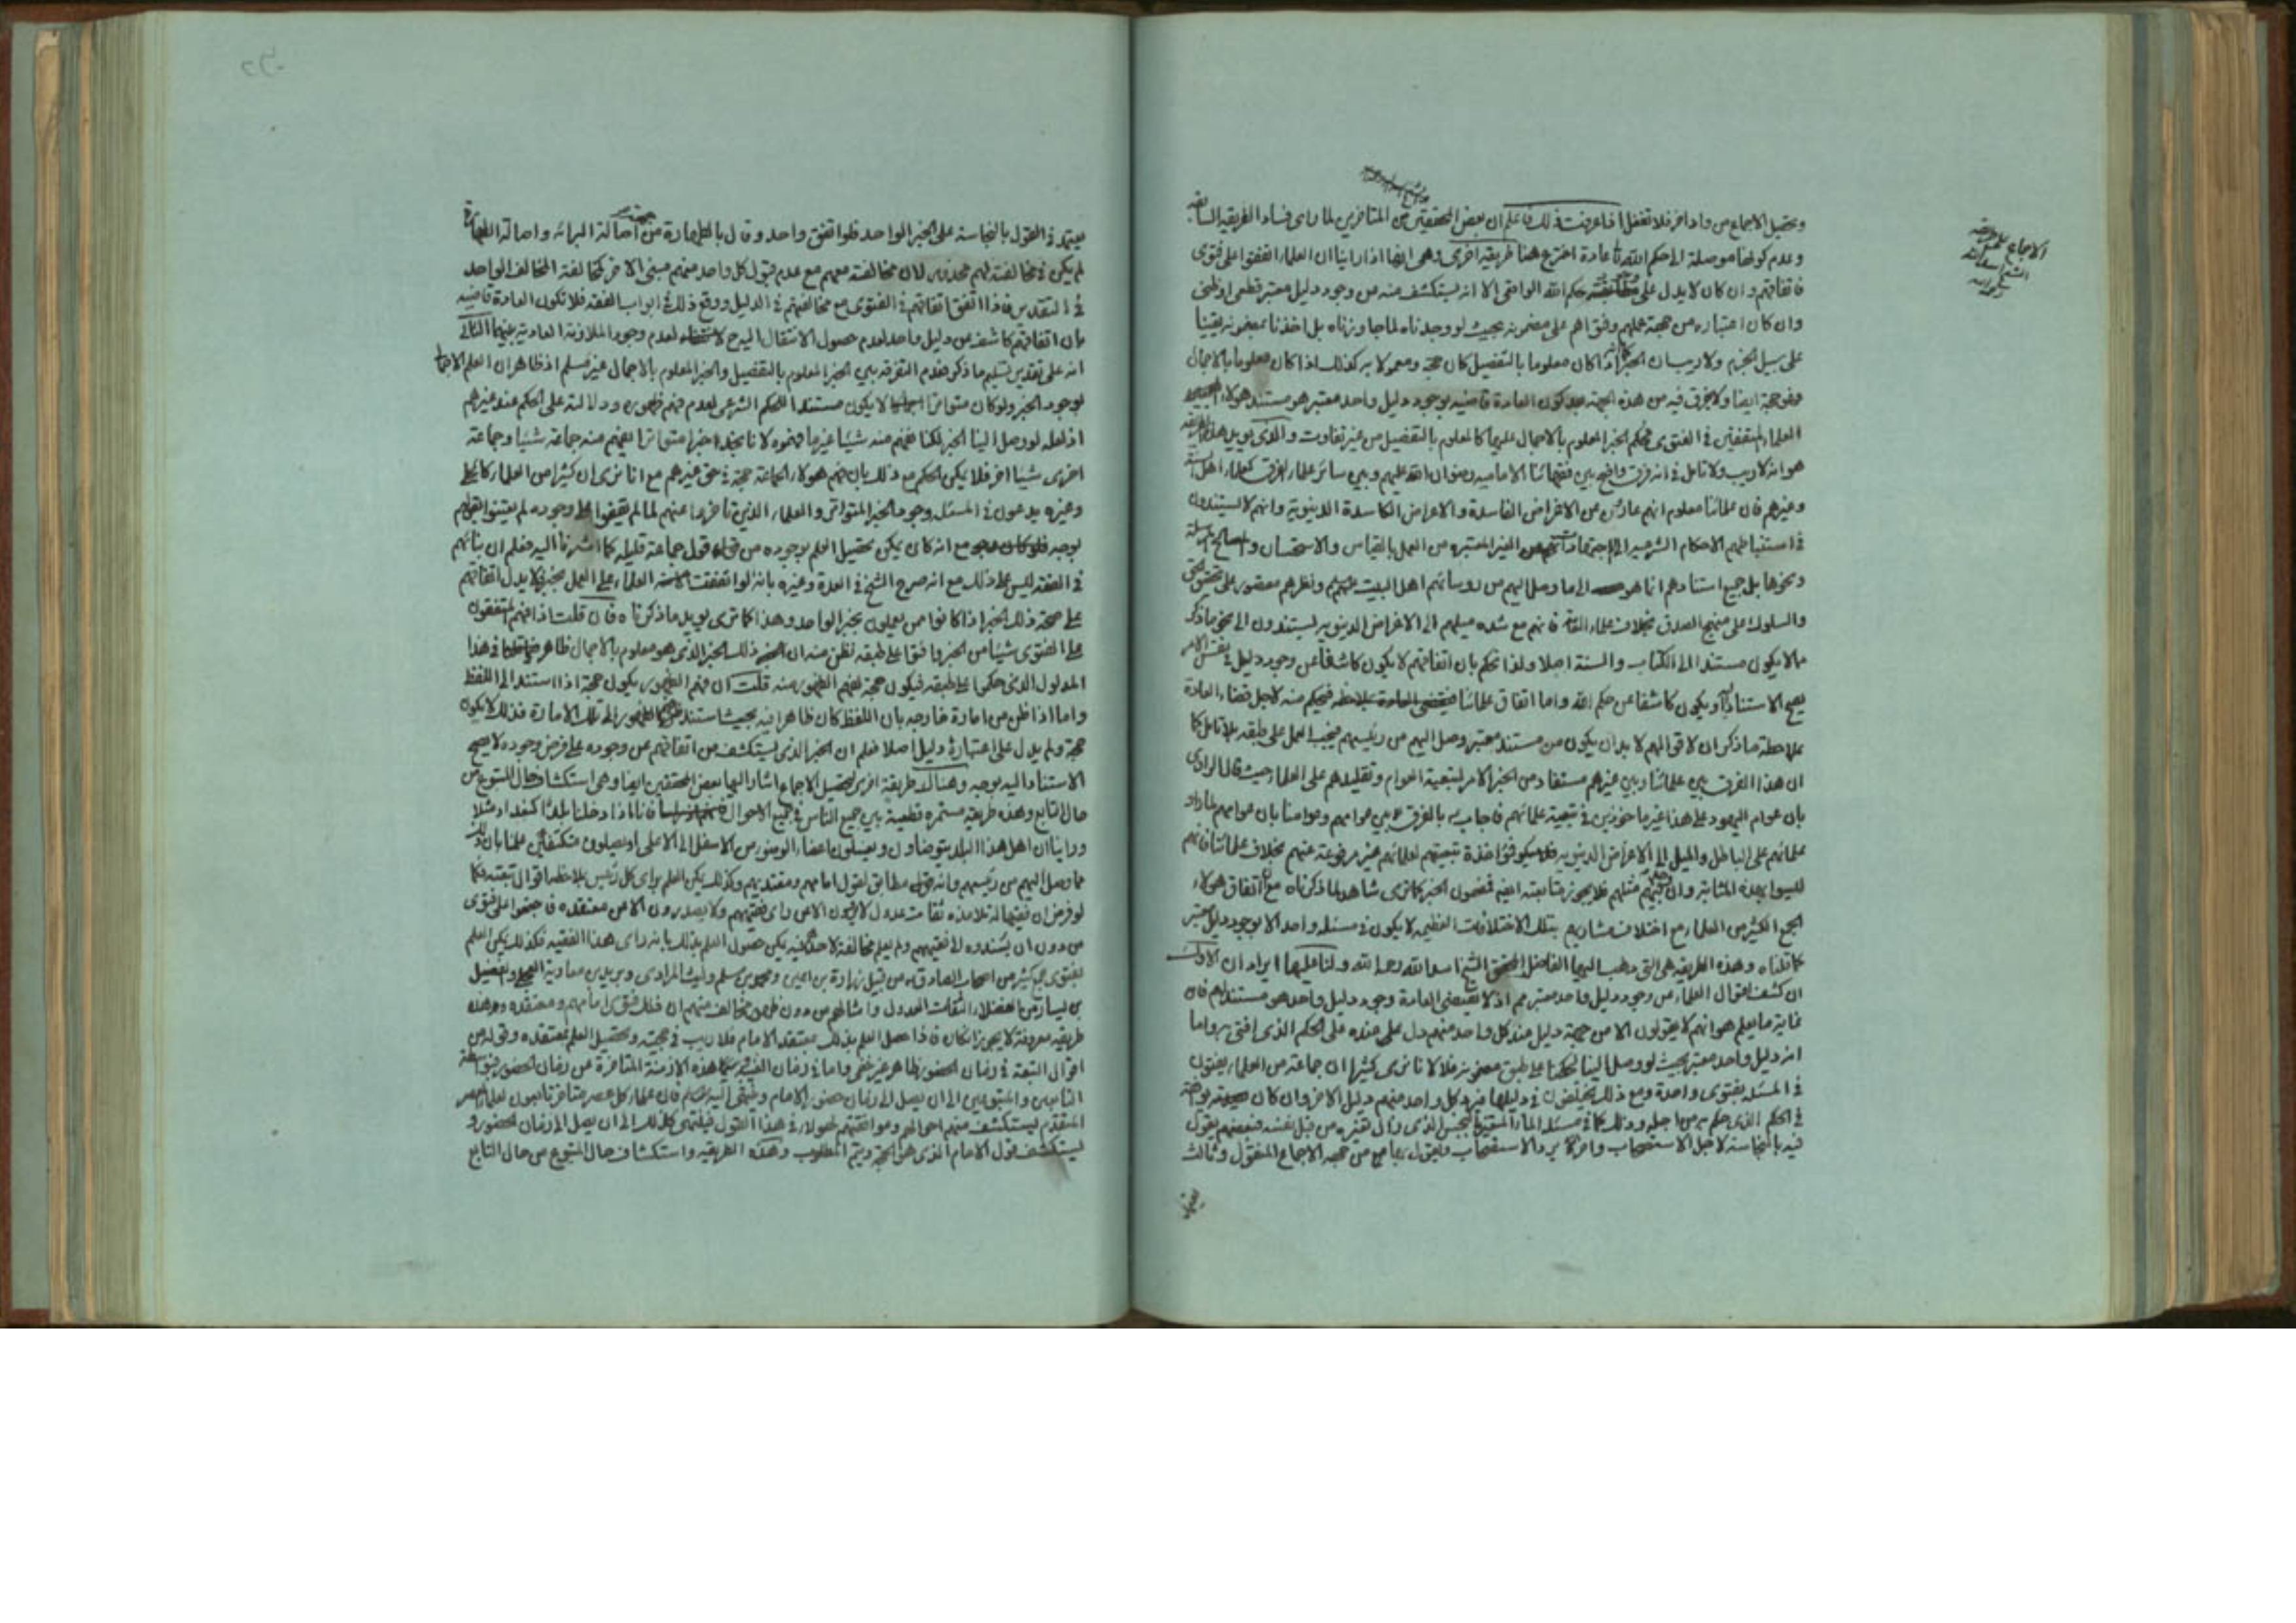 وتحصيل الاجماع من واد اخر فلا تغفل اذا عرفت ذلك فاعلم ان بعض المحققين من المتاخرين لما راى فساد الطريقة السابقة
وعدم كونها موصلة الى حكم الله عادة اخترع هنا طريقة اخرى وهى ايضا اذا راينا ان العلماء اتفقوا على فتوى
فاتفاقهم وان كان لا يدل على حكم الله الواقعى الا انه يستكشف منه من وجود دليل معتبر قطعى او ظنى
وان كان اعتباره من جهة عملهم وفتواهم على مضمونه بحيث لو وجدناه لما جاوزناه بل اخذنا بمضمونه يقينا
على سبيل الجزم ولا ريب ان الخبر اذا كان معلوما بالتفصيل كان حجة ومعمولا به كذلك اذا كان معلوما بالاجمال
فهو حجة ايضا ولا فرق فيه من هذه الجهة كون العادة قاضية بوجود دليل واحد معتبر هو مستند هولاء
العلماء المتفقين فى الفتوى فحكم الخبر المعلوم بالاجمال عليها كالمعلوم بالتفصيل من غير تفاوت والذى يويد هذه الطريقة
هو انه لا ريب ولا تامل فى انه فرق واضح بين فقهائنا الامامية رضوان الله عليهم وبين ساير علماء الفرق كعلماء اهل السنة
وغيرهم فان علمائنا معلوم انهم عارون عن الاغراض الفاسدة والاعراض الكاسدة الدنيوية وانهم لا يستندون
فى استنباطهم الاحكام الشرعية الى اجتهاداتهم الغير المعتبرة من العمل بالقياس والاستحسان والمصالح المرسلة
ونحوها بل جميع استنادهم انما هو الى ما وصل اليهم من روسائهم اهل البيت عليهم ونظرهم مقصور على تحقيق الحق
والسلوك على منهج الصدق بخلاف علماء العامة فانهم مع شدة ميلهم الى الاغراض الدنيوية يستندون الى نحو ما ذكر
مما لا يكون مستندا الى الكتاب والسنة اصلا ولذا نحكم بان اتفاقهم لا يكون كاشفا عن وجود دليل فى نفس الامر
يصح الاستناد به او يكون كاشفا عن حكم الله واما اتفاق علمائنا فيحكم منه لاجل قضاء العادة
بملاحظة ما ذكر ان لاقوالهم لا بد ان يكون من مستند معتبر وصل اليهم من رئيسهم فيجب العمل على طبقه بلا تامل كما
ان هذا الفرق بين علمائنا وبين غيرهم مستفاد من الخبر الامر لتبعية العوام وتقليدهم على العلماء حيث قال الراوى
بان عوام اليهود على هذا غير ماخوذين فى تبعية علمائهم فاجاب بالفرق بين عوامهم وعوامنا بان عوامهم
علمائهم على الباطل والميل الى الاعراض الدنيوية تبعيتهم لعلمائهم غير مرفوعة عنهم بخلاف علمائنا فانهم
ليسوا بهذه المثابة وان مثلهم فلا يجوز متابعته ايضا فمضمون الخبر كما ترى شاهد لما ذكرناه مع ان اتفاق هولاء
الجمع الكثير من العلماء مع اختلاف مشاربهم بتلك الاختلافات العظيمة لا يكون فى مسئلة واحدة الا بوجود دليل معتبر
كما قلناه وهذه الطريقة هى التى ذهب اليها الفاضل المحقق الشيخ اسد الله رحمه الله ولنا عليها ايراد ان الاول
ان كشف اقوال العلماء عن وجود دليل واحد معتبر مم اذ لا تقتضى العادة وجود دليل واحد هو مستندهم فان
غاية ما يعلم هو انهم لا يقولون الا من جهة دليل عند كل واحد منهم دل على هذه على الحكم الذى افتى به واما
انه دليل واحد معتبر بحيث لو وصل الينا لحكمنا على طبق مضمونه فلا لانا نرى كثيرا ان جماعة من العلماء يفتون
فى المسئلة بفتوى واحدة ومع ذلك يختلفون فى دليلها فيرد كل واحد منهم دليل الاخر وان كان
فى الحكم الذى حكم به من اجله وذلك كما فى مسئلة الماء المتغير بالنجس الذى زال تغيره من قبل نفسه فبعضهم يقول
فيه بالنجاسة لاجل الاستصحاب واخر يرد الاستصحاب ويقول بها من جهة الاجماع المنقول وثالث
الاجماع
الشيخ اسد الله
رحمه الله
يعتمد فى القول بالنجاسة على الخبر الواحد فلو اتفق واحد وقال بالطهارة من جهة اصالة البرائة واصالة الطهارة
لم يكن فى مخالفته لهم محذور لان مخالفته معهم مع عدم قبول كل واحد منهم مبنى الاخر كمخالفة المخالف الواحد
فى التقدير فاذا اتفق اتفاقهم فى الفتوى مع مخالفتهم فى الدليل ووقع ذلك فى ابواب الفقه فلا تكون العادة قاضية
بان اتفاقهم كاشف عن دليل واحد لعدم حصول الانتقال اليه ح لعدم وجود الملازمة العادية بينهما الثانى
انه على تقدير تسليم ما ذكر فعدم التفرقة بين الخبر المعلوم بالتفصيل والخبر المعلوم بالاجمال غير مسلم اذ ظاهر ان العلم الاجمالى
بوجود الخبر ولو كان متواترا لا يكون مستندا للحكم الشرعى لعدم فهم ظهوره ودلالته على الحكم عند غيرهم
اذ لعله لو وصل الينا الخبر لكنا نفهم منه شيئا غير ما فهموه لانا نجد اخبرا متواترا يفهم منه جماعة شيئا وجماعة
اخرى شيئا اخر فلا يمكن الحكم مع ذلك بان فهم هولاء الجماعة حجة فى حق غيرهم مع انا نرى ان كثيرا من العلماء
وغيره يدعون فى المسئلة وجود الخبر المتواتر والعلماء الذين تاخروا عنهم لما لم يقفوا على وجوده لم يعتنوا بقولهم
بوجه مع انه كان يمكن تحصيل العلم بوجوده من قول جماعة قليلة كما اشرنا اليه فعلم ان بنائهم
فى الفقه ليس على ذلك مع انه صرح الشيخ فى العدة وغيره بانه لو اتفقت العلماء على العمل بخبر لا يدل اتفاقهم
على صحة ذلك الخبر اذا كانوا ممن يعملون بخبر الواحد وهذا كما ترى يويد ما ذكرناه فان قلت اذا فهم المتفقون
على الفتوى شيئا من الخبر وافتوا على طبقه نظن منه ان ذلك الخبر الذى هو معلوم بالاجمال ظاهر فى هذا
المدلول الذى حكموا على طبقه فيكون حجة لفهم الظهور منه قلت ان فهم الظهور يكون حجة اذا استند الى اللفظ
واما اذا ظن من امارة خارجه بان اللفظ كان ظاهرا فيه بحيث استند الظهور الى تلك الامارة فذلك لا يكون
حجة ولم يدل على اعتباره دليل اصلا فعلم ان الخبر الذى يستكشف من اتفاقهم عن وجوده على فرض وجوده لا يصح
الاستناد اليه بوجه وهنالك طريقة اخرى لتحصيل الاجماع اشار اليها بعض المحققين ايضا وهى استكشاف حال المتبوع من
حال التابع وهذه طريقة مستمرة قطعية بين جميع الناس فى جميع الاحوال فانا اذا دخلنا بلدا كبغداد مثلا
وراينا ان اهل هذا البلد يتوضاون ويغسلون اعضاء الوضوء من الاسفل الى الاعلى او يصلون متكتفاً علمنا بان ذلك
مما وصل اليهم من رئيسهم وانه مطابق لقول امامهم ومقتديهم وكذلك يمكن العلم براى كل رئيس بملاحظة اقوال تبعته فكما
لو فرض ان فقيها له تلامذه ثقات عدول لا يقولون الا من راى فقيههم ولا يصدرون الا من معتقده فاجتمعوا على فتوى
من دون ان يسندوه لا لفقيههم ولم يعلم مخالفة لاحد فيه يمكن حصول العلم بذلك بانه راى هذا الفقيه فكذلك يمكن العلم
بفتوى جمع كثير من اصحاب الصادق من قبيل زرارة بن اعين ومحمد بن مسلم وليث المرادى وبريد بن معاوية العجلى والفضيل
بن يسار من الفضلاء الثقات العدول وامثالهم من دون ظهور مخالف منهم ان ذلك فتوى امامهم ومعتقده وهذه
طريقة معروفة لا يجوز انكاره فاذا حصل العلم بذلك بمعتقد الامام فلا ريب فى حجيته وتحصيل العلم بمعتقده وقوله من
اقوال التبعة فى زمان الحضور ظاهر غير خفى واما فى زمان الغيبة سيما هذه الازمنة المتاخرة عن زمان الحضور فبواسطة
التابعين والمتبوعين الى ان يصل الى زمان حضور الامام وينتهى اليه فان علماء كل عصر متاخر تابعون لعلماء العصر
المتقدم ليستكشف منهم احوالهم وموافقتهم لهولاء فى هذا القول فينتهى كذلك الى ان يصل الى زمان الحضور و
يستكشف قول الامام الذى هو الحجة ويتم المطلوب وهذه الطريقة واستكشاف حال المتبوع من حال التابع